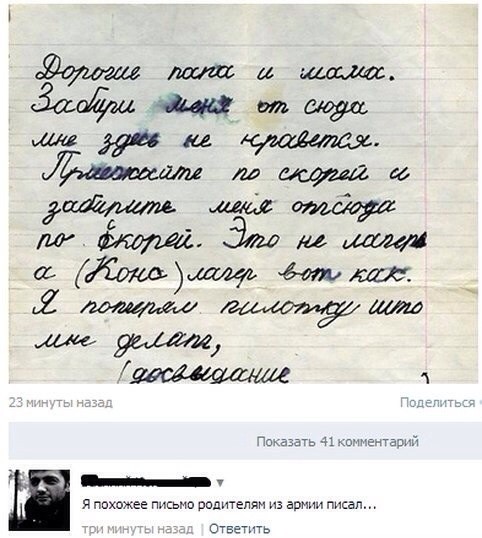 Дорогие папа и мама.
Забири меня от сюда
мне здесь не нравется.
Приезжайте по скорей и
забирите меня отсюда
по скорей. Это не лагерь
а (Конс) лагер вот как.
Я потерял пилотку што
мне делат,
(досвыдание
23 минуты назад
Поделиться
Показать 41 комментарий
Я похожее письмо родителям из армии писал...
три минуты назад | Ответить